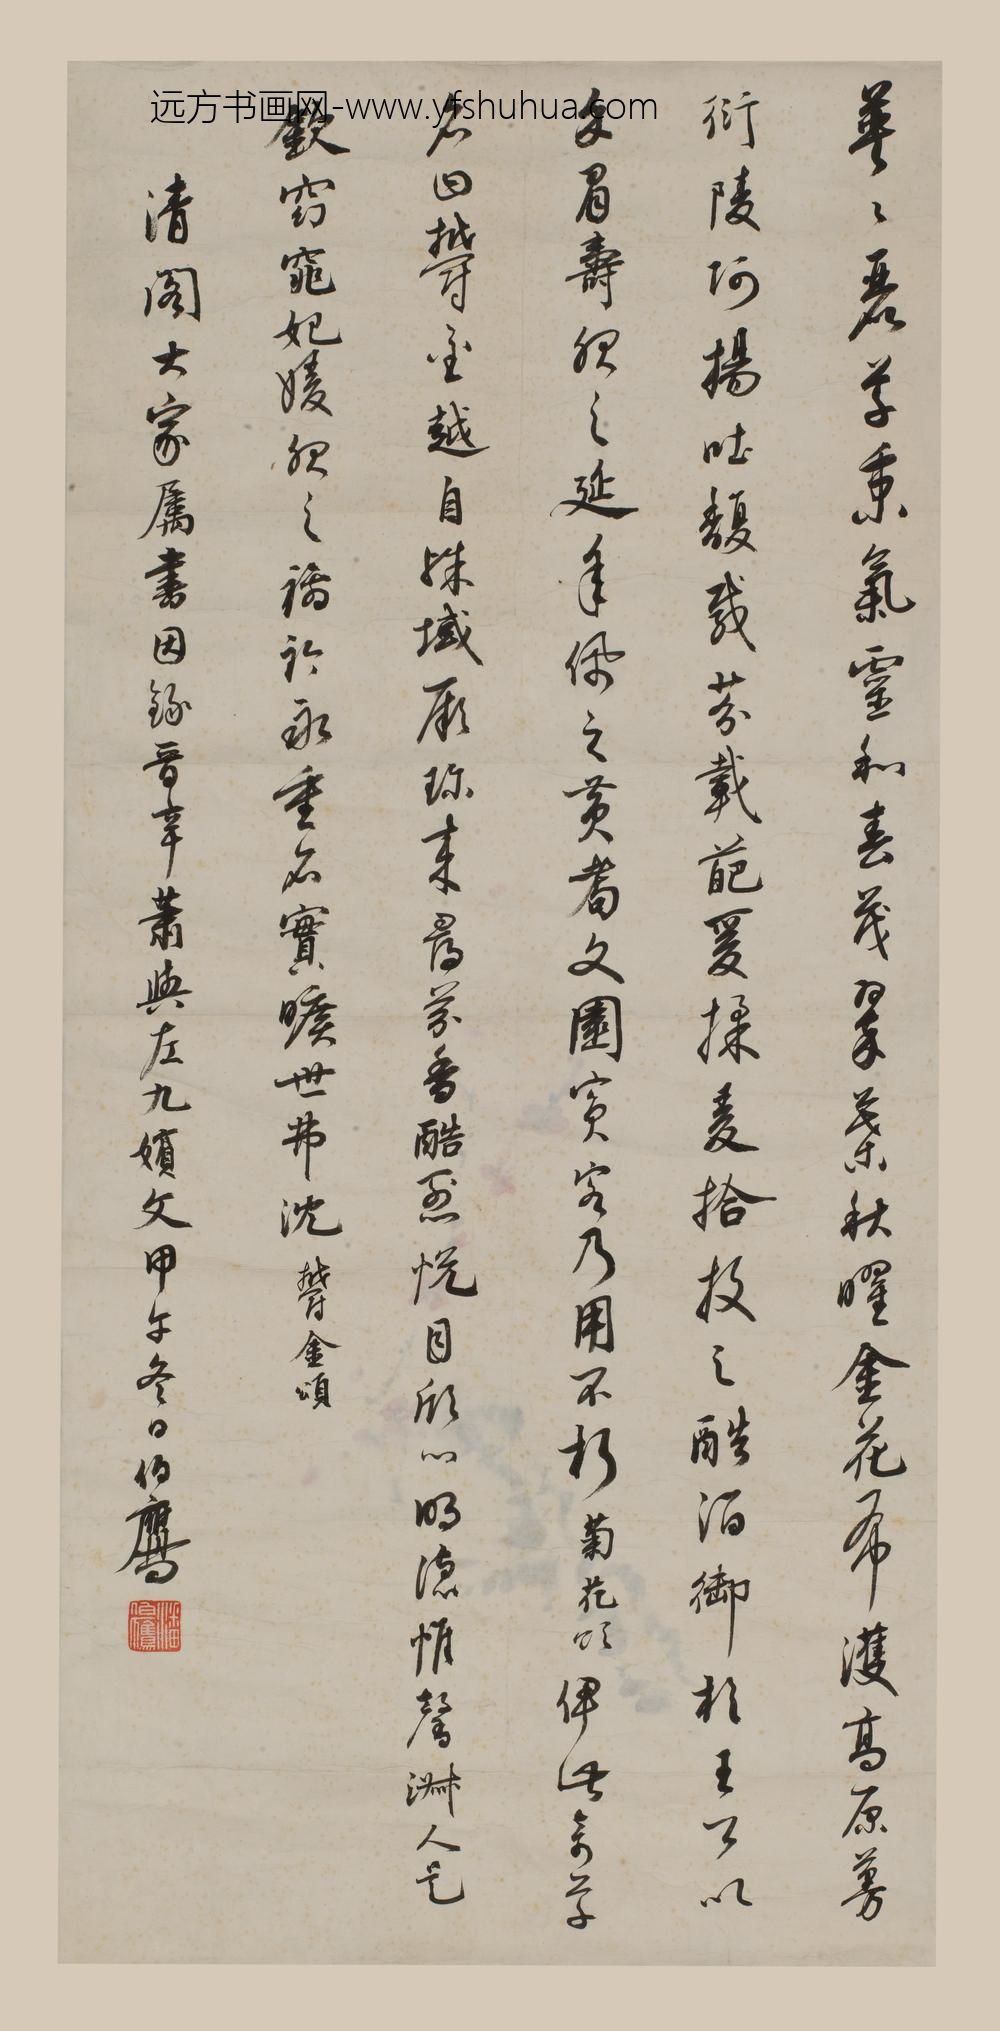 英〻麗草秉氣靈和春茂翠葉秋曜金花布濩高原蔓
衍陵阿揚吐馥載芬載葩爰採爰拾投之酷酒御於王公以
介眉壽服之延年佩之黃耇文園賓客乃用不朽菊花頌伊此奇草
名曰鬱金越自殊域厥珍來尋芬香酷烈悅目欣心明德惟馨淑人是
欽窈窕妃媛服之褵衿永垂名實曠世弗沈鬱金頌
清閣大家屬書因錄晉辛蕭與左九嬪文甲午冬日伯鷹
潘伯鷹
远方书画网-www.yfshuhua.com